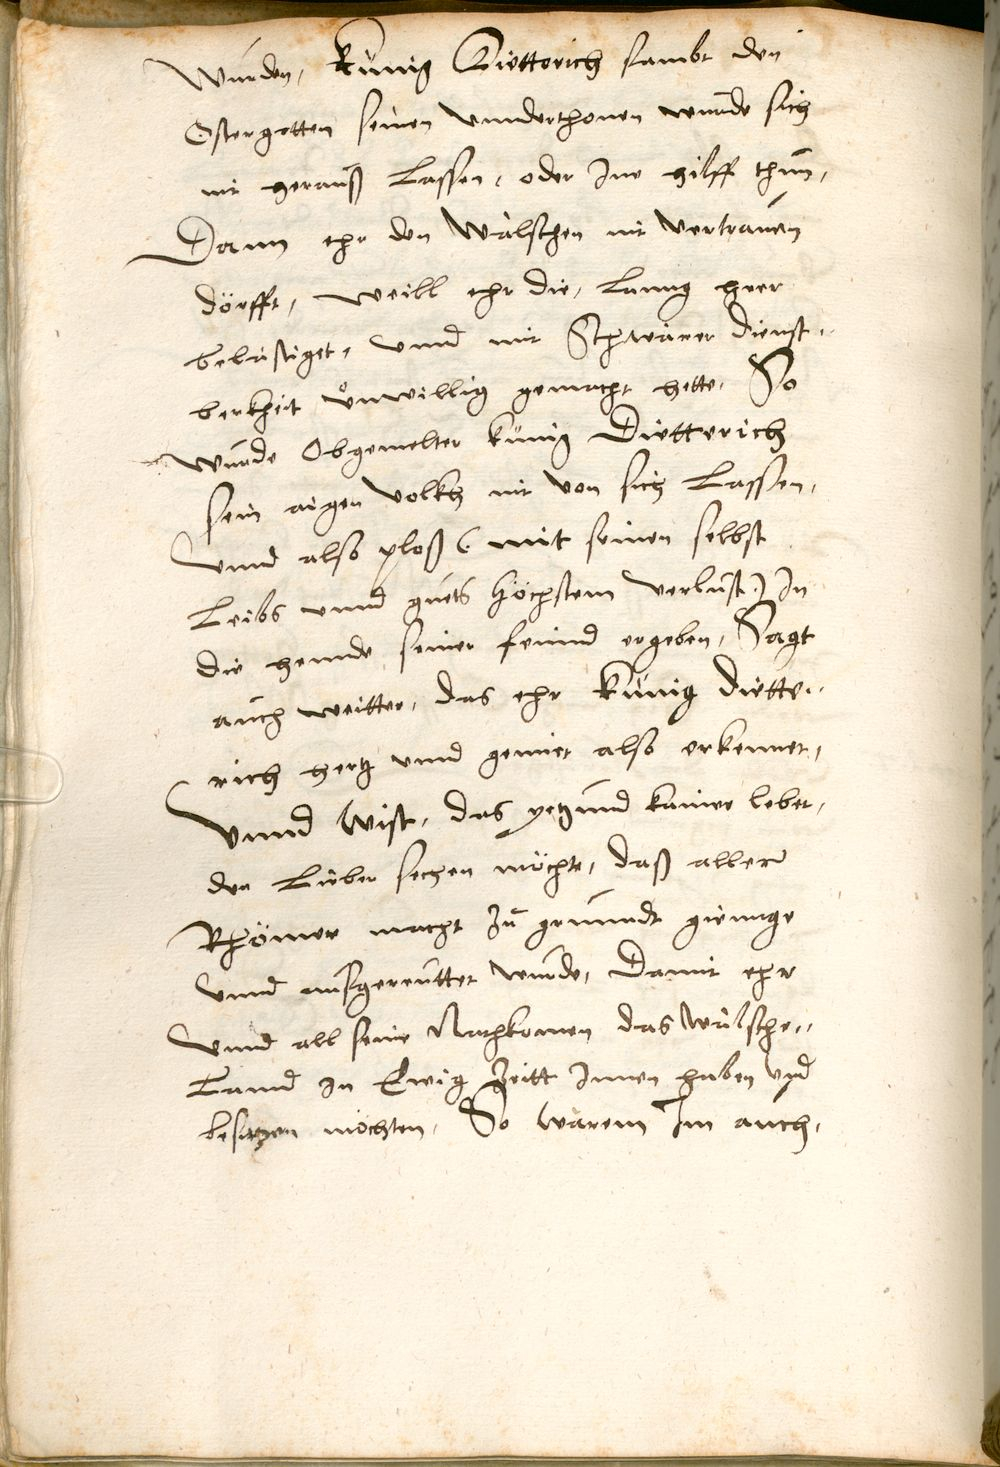 Wurden, Künig Dietterich sambt den
Ostergotten seinen Vnnderthonen wurde sich
nit herauß Lassen, oder Ime hilff thun,
Dann ehr den Wälschen nit Vertrauen
dörfft, weill ehr die, Lanng heer
belästiget, Vnnd mit Schwärer dienst,,
berkheit vnwillig gemacht hette, So
wurde Obgemelter künig Dietterich
sein aigen Volkh nit Von sich Lassen,
Vnnd also ploß (: mit seinen selbst
Leibs vnnd guets höchstem Verlust :) In
die hennde seiner feinnd ergeben, Sagt
auch weitter, das ehr Künig Diette,,
rich hertz vnnd gemiet also erkennet,
Vnnd Wist, das yetzund kainer lebet,
den Lieber sechen möchte, daß aller
Rhömer macht Zu grundt gienge
Vnnd außgereuttet wurde, Damit ehr
Vnnd all seine Nachkomen das Wälsche,,
Lannd In Ewig Zeitt Innen haben vnd
besitzen möchten, So warem Im auch,